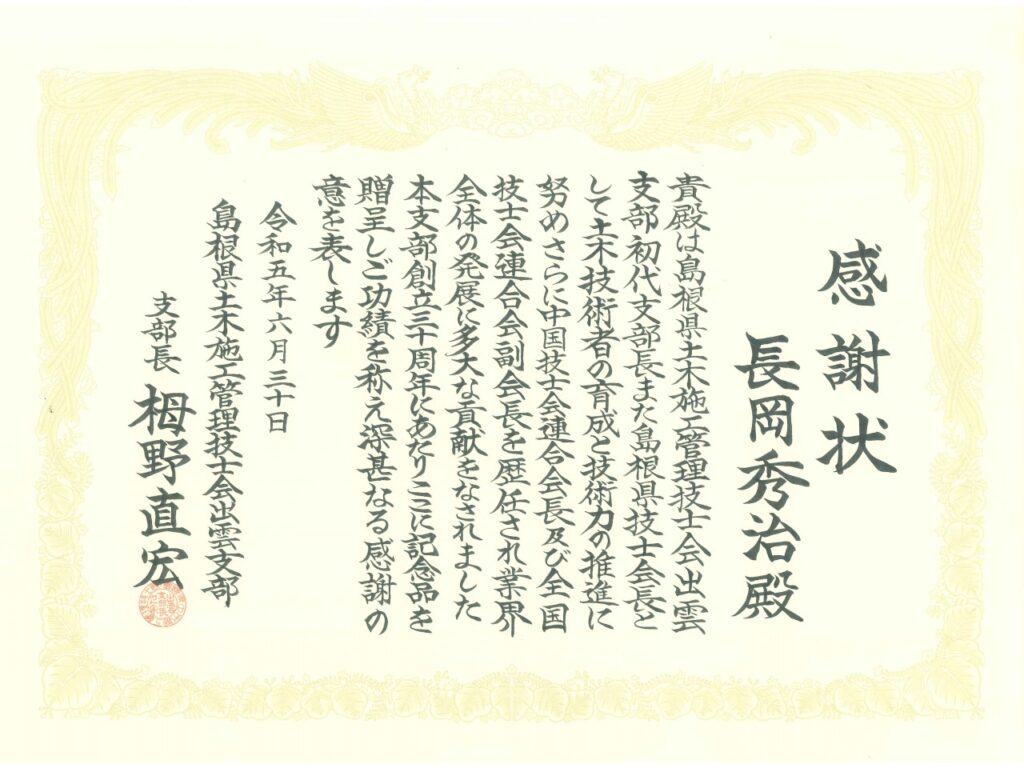 感謝状
長岡秀治殿
貴殿は島根県土木施工管理技士会出雲
支部初代支部長また島根県技士会長と
して土木技術者の育成と技術力の推進に
努めさらに中国技士会連合会長及び全国
技士会連合会副会長を歴任され業界
全体の発展に多大な貢献をなされました
本支部創立三十周年にあたりここに記念品を
贈呈しご功績を称え深甚なる感謝の
意を表します
令和五年六月三十日
島根県土木施工管理技士会出雲支部
支部長 栂野直宏